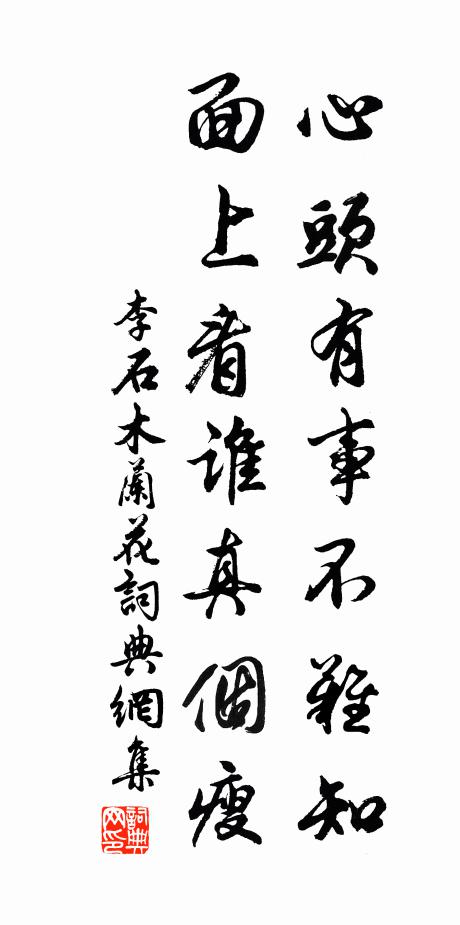 心頭有事不難知
面上看誰真個瘦
李石木蘭花詞典網集
詞典网印